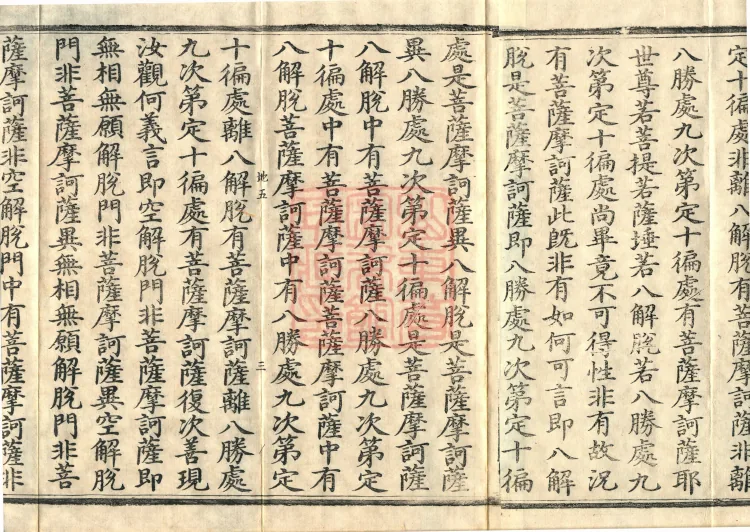 定十徧處非離八解脫有菩薩摩訶薩非離
八勝處九次第定十徧處有菩薩摩訶薩耶
世尊若菩提若薩埵若八解脫若八勝處九
次第定十徧處尚畢竟不可得性非有故況
有菩薩摩訶薩此旣非有如何可言即八解
脫是菩薩摩訶薩即八勝處九次第定十徧
處是菩薩摩訶薩異八解脫是菩薩摩訶薩
異八勝處九次第定十徧處是菩薩摩訶薩
八解脫中有菩薩摩訶薩八勝處九次第定
十徧處中有菩薩摩訶薩菩薩摩訶薩中有
八解脫菩薩摩訶薩中有八勝處九次第定
地五 三
十徧處離八解脫有菩薩摩訶薩離八勝處
九次第定十徧處有菩薩摩訶薩復次善現
汝觀何義言即空解脫門非菩薩摩訶薩即
無相無願解脫門非菩薩摩訶薩異空解脫
門非菩薩摩訶薩異無相無願解脫門非菩
薩摩訶薩非空解脫門中有菩薩摩訶薩非